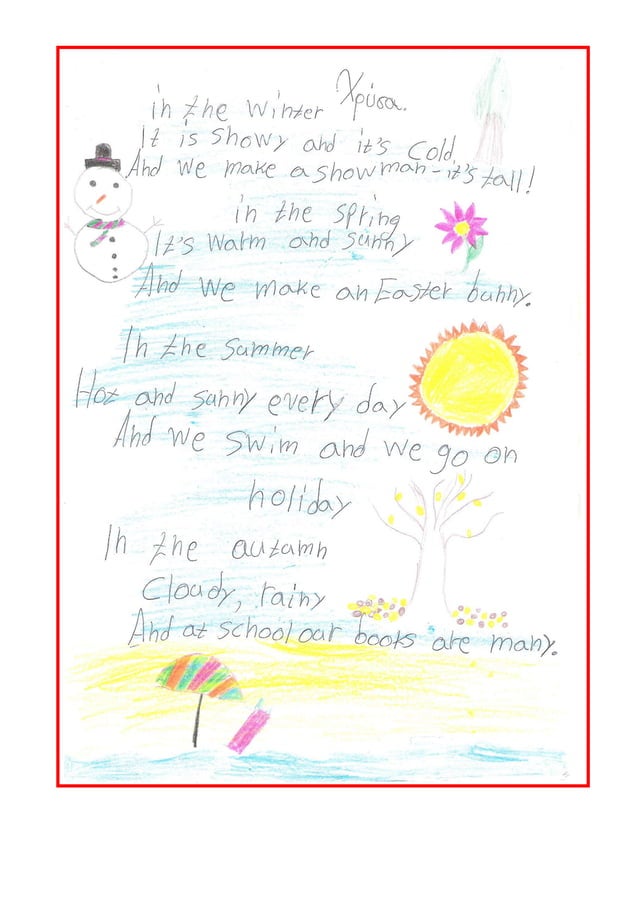 in the winter Χρύσα.
It is snowy and it's cold
And we make a snowman-it's tall!
in the spring
It's warm and sunny
And we make an Easter bunny.
In the summer
Hot and sunny every day
And we swim and we go on
holiday
In the autumn
Cloudy, rainy
And at school our books are many.